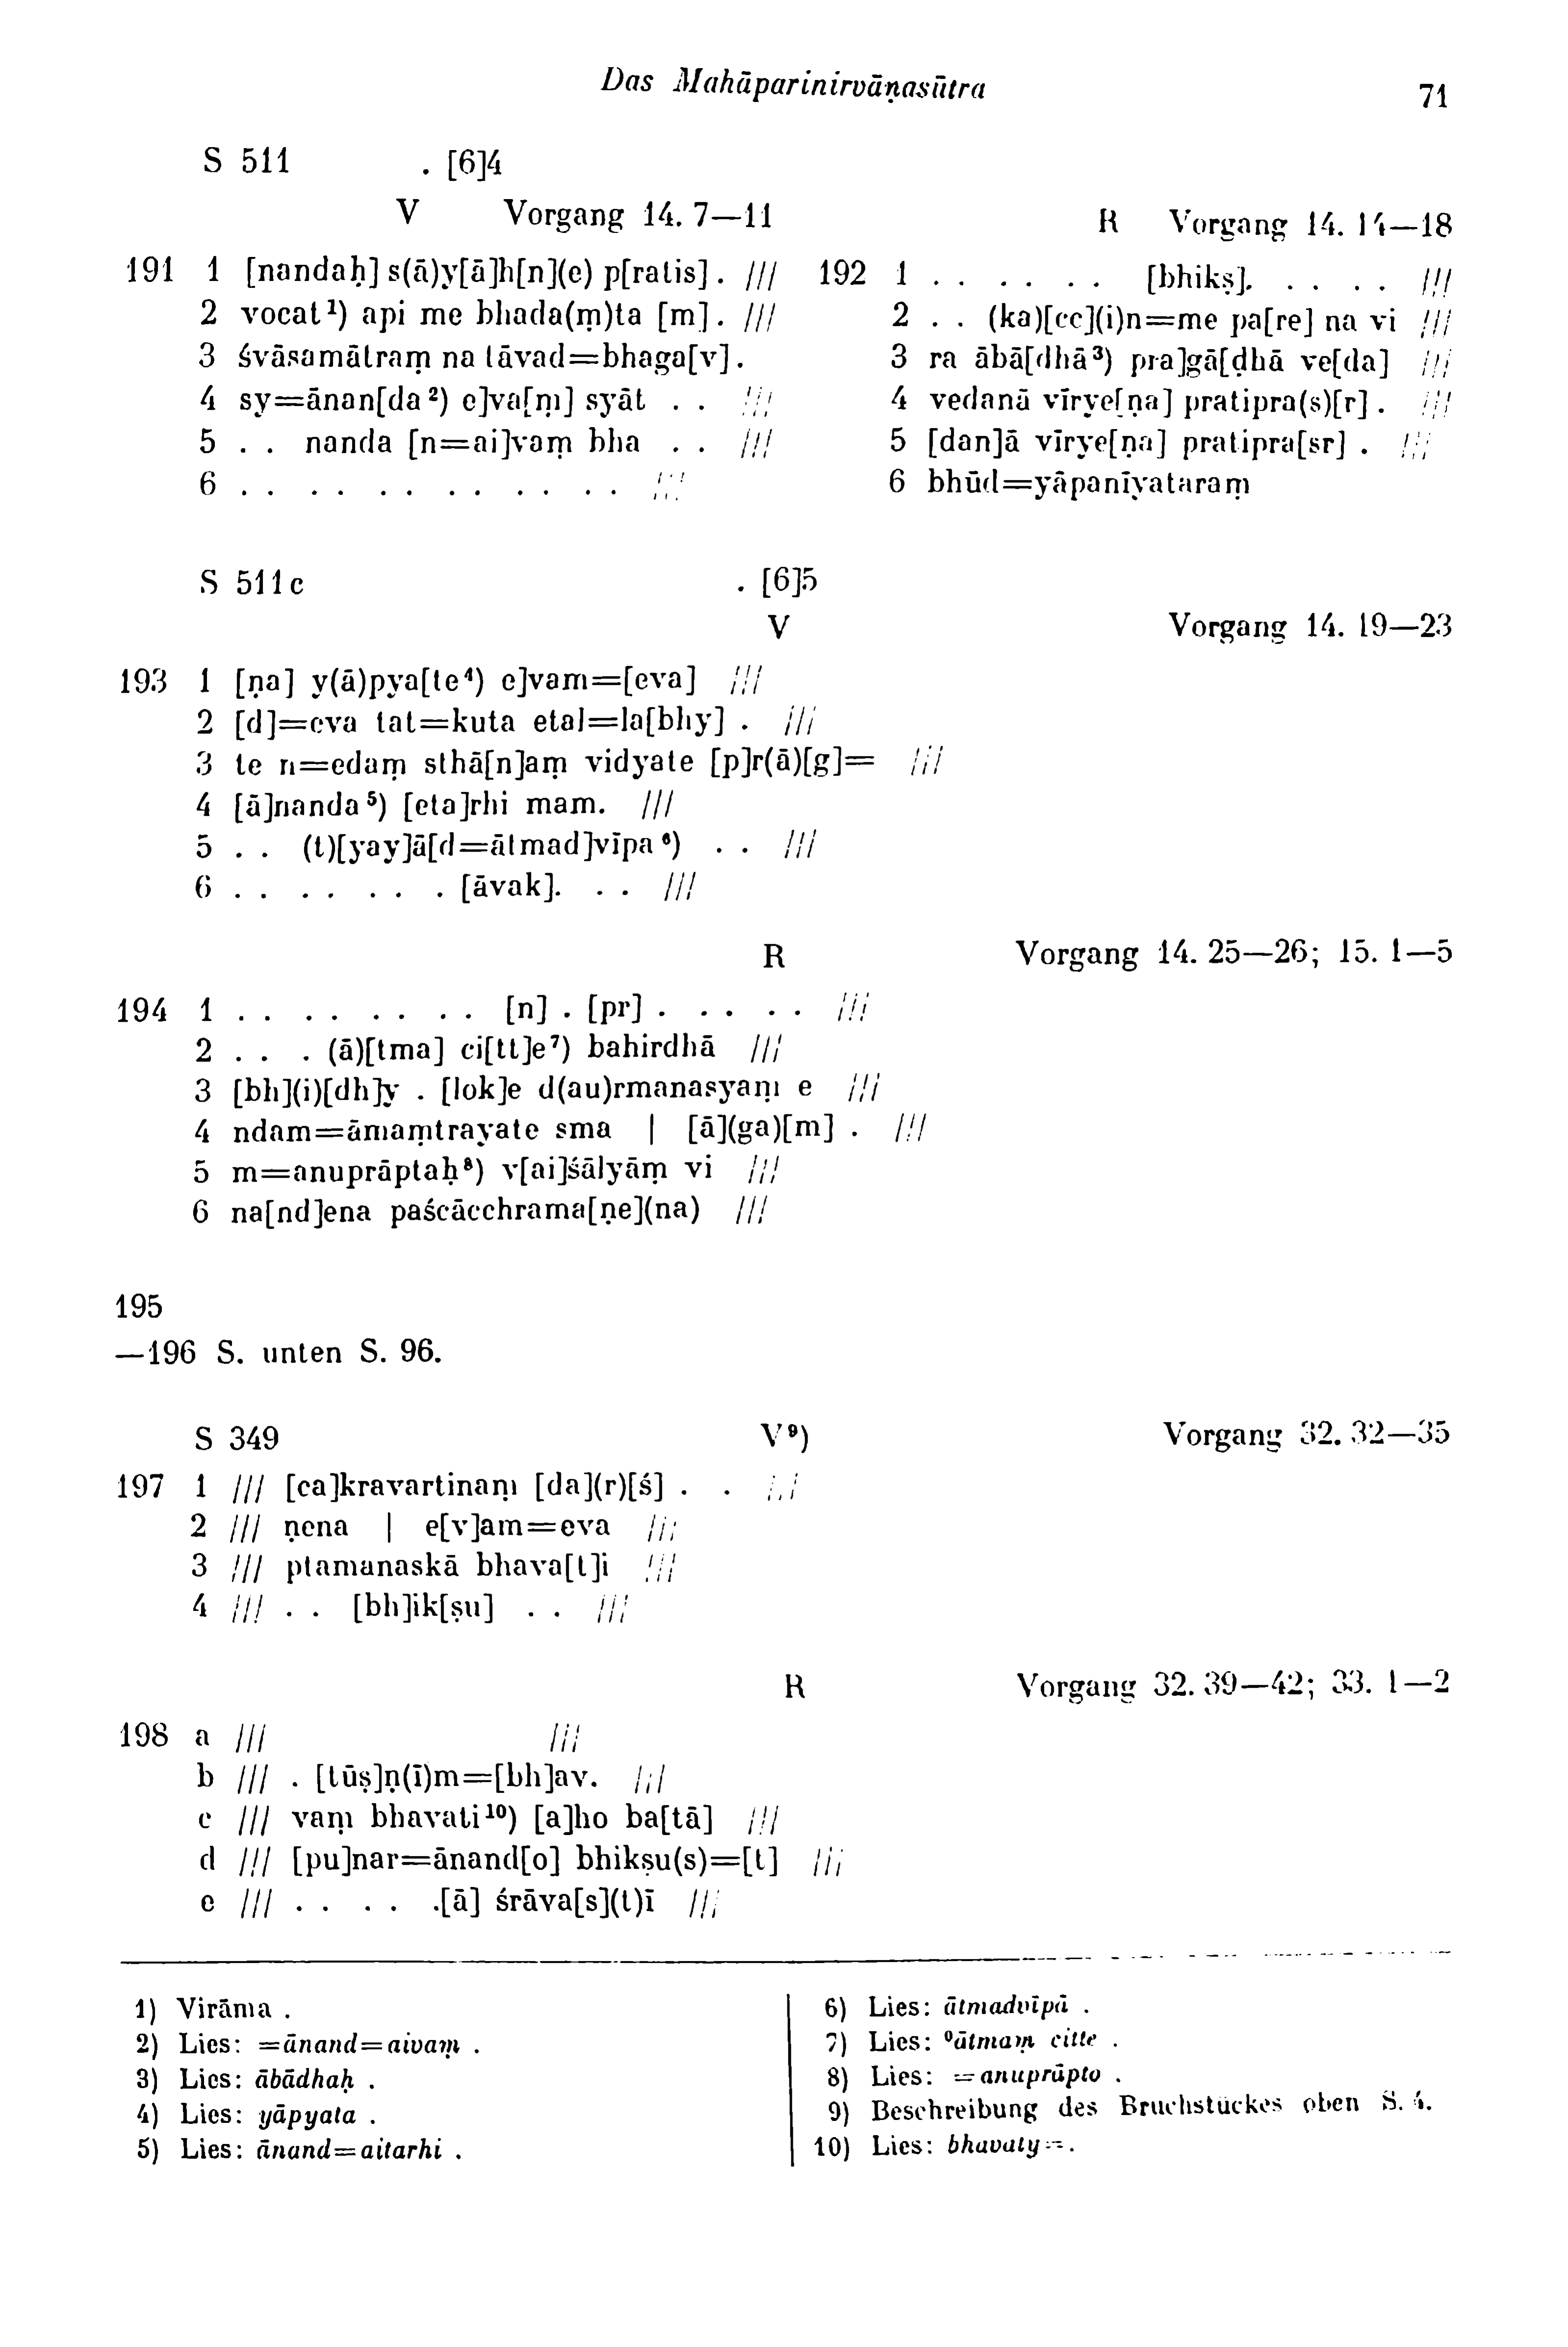 Das Mahāparinirvāṇasūtra 71
S 511 . [6]4
V Vorgang 14. 7—11
191 1 [nandaḥ] s(ā)y[ā]h[n](e) p[ratis] . ///
2 vocat¹) api me bhada(ṃ)ta [m] . ///
3 śvāsamātraṃ na tāvad=bhaga[v] .
4 sy=ānan[da²) e]va[ṃ] syāt . . ///
5 . . nanda [n=ai]vaṃ bha . . ///
6 . . . . . . . . . . . . ///
R Vorgang 14. 14—18
192 1 . . . . . . [bhikṣ]. . . . . ///
2 . . (ka)[cc](i)n=me pa[re] na vi ///
3 ra ābā[dhā³) pra]gā[ḍhā ve[da] ///
4 vedanā vīrye[ṇa] pratipra(s)[r] . ///
5 [dan]ā vīrye[ṇa] pratipra[sr] . ///
6 bhūd=yāpanīyataraṃ
S 511c . [6]5
V Vorgang 14. 19—23
193 1 [ṇa] y(ā)pya[te⁴) e]vam=[eva] ///
2 [d]=eva tat=kuta etal=la[bhy] . ///
3 te n=edaṃ sthā[n]aṃ vidyate [p]r(ā)[g]= ///
4 [ā]nanda⁵) [eta]rhi mam. ///
5 . . (t)[yay]ā[d=ātmad]vīpa⁶) . . ///
6 . . . . . . . [āvak]. . . ///
R Vorgang 14. 25—26; 15. 1—5
194 1 . . . . . . . . [n] . [pr] . . . . . ///
2 . . . (ā)[tma] ci[tt]e⁷) bahirdhā ///
3 [bh](i)[dh]y . [lok]e d(au)rmanasyaṃ e ///
4 ndam=āmaṃtrayate sma | [ā](ga)[m] . ///
5 m=anuprāptaḥ⁸) v[ai]śālyāṃ vi ///
6 na[nd]ena paścācchrama[ṇe](na) ///
195
—196 S. unten S. 96.
S 349 V⁹) Vorgang 32. 32—35
197 1 /// [ca]kravartinaṃ [da](r)[ś] . . ///
2 /// ṇena | e[v]am=eva ///
3 /// ptamanaskā bhava[t]i ///
4 /// . . [bh]ik[ṣu] . . ///
R Vorgang 32. 39—42; 33. 1—2
198 a /// ///
b /// . [tūṣ]ṇ(ī)m=[bh]av. ///
c /// vaṃ bhavati¹⁰) [a]ho ba[tā] ///
d /// [pu]nar=ānand[o] bhikṣu(s)=[t] ///
e /// . . . . .[ā] śrāva[s](t)ī ///
1) Virāma .
2) Lies: =ānand=aivaṃ .
3) Lies: ābādhaḥ .
4) Lies: yāpyata .
5) Lies: ānand=aitarhi .
6) Lies: ātmadvīpā .
7) Lies: ⁰ātmaṃ citte .
8) Lies: =anuprāpto .
9) Beschreibung des Bruchstückes oben S. 4.
10) Lies: bhavaty=.